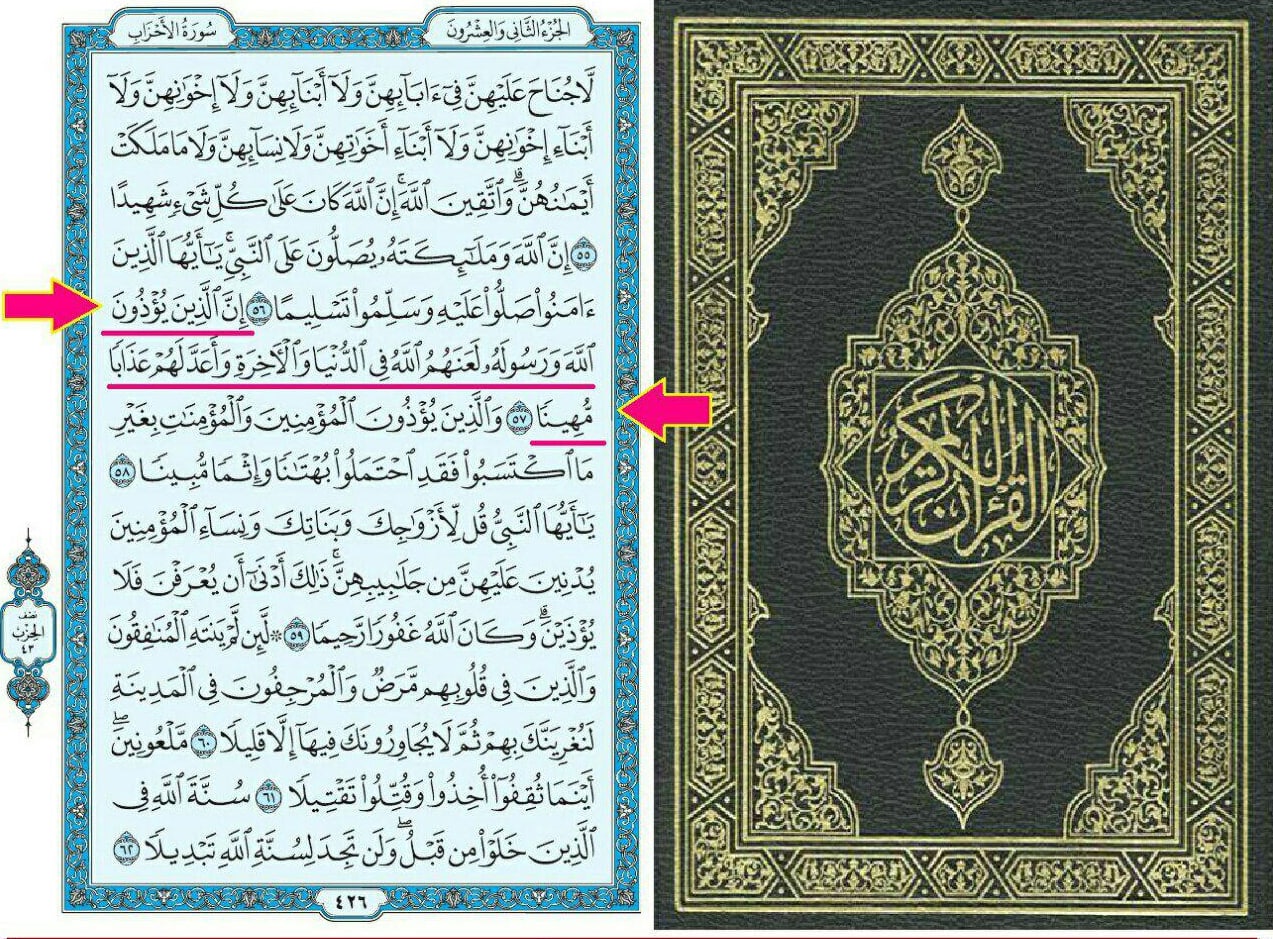 الجزء الثاني والعشرون
سورة الأحزاب
لَّا جُنَاحَ عَلَيْهِنَّ فِيٓ ءَابَآئِهِنَّ وَلَآ أَبْنَآئِهِنَّ وَلَآ إِخْوَٰنِهِنَّ وَلَآ
أَبْنَآءِ إِخْوَٰنِهِنَّ وَلَآ أَبْنَآءِ أَخَوَٰتِهِنَّ وَلَا نِسَآئِهِنَّ وَلَا مَا مَلَكَتْ
أَيْمَٰنُهُنَّۗ وَٱتَّقِينَ ٱللَّهَۚ إِنَّ ٱللَّهَ كَانَ عَلَىٰ كُلِّ شَيْءٖ شَهِيدًا
٥٥ إِنَّ ٱللَّهَ وَمَلَٰٓئِكَتَهُۥ يُصَلُّونَ عَلَى ٱلنَّبِيِّۚ يَٰٓأَيُّهَا ٱلَّذِينَ
ءَامَنُواْ صَلُّواْ عَلَيْهِ وَسَلِّمُواْ تَسْلِيمًا ٥٦ إِنَّ ٱلَّذِينَ يُؤْذُونَ
ٱللَّهَ وَرَسُولَهُۥ لَعَنَهُمُ ٱللَّهُ فِي ٱلدُّنْيَا وَٱلْأٓخِرَةِ وَأَعَدَّ لَهُمْ عَذَابٗا
مُّهِينٗا ٥٧ وَٱلَّذِينَ يُؤْذُونَ ٱلْمُؤْمِنِينَ وَٱلْمُؤْمِنَٰتِ بِغَيْرِ
مَا ٱكْتَسَبُواْ فَقَدِ ٱحْتَمَلُواْ بُهْتَٰنٗا وَإِثْمٗا مُّبِينٗا ٥٨
يَٰٓأَيُّهَا ٱلنَّبِيُّ قُل لِّأَزْوَٰجِكَ وَبَنَاتِكَ وَنِسَآءِ ٱلْمُؤْمِنِينَ
يُدْنِينَ عَلَيْهِنَّ مِن جَلَٰبِيبِهِنَّۚ ذَٰلِكَ أَدْنَىٰٓ أَن يُعْرَفْنَ فَلَا
يُؤْذَيْنَۗ وَكَانَ ٱللَّهُ غَفُورٗا رَّحِيمٗا ٥٩ ۞ لَّئِن لَّمْ يَنتَهِ ٱلْمُنَٰفِقُونَ
وَٱلَّذِينَ فِي قُلُوبِهِم مَّرَضٞ وَٱلْمُرْجِفُونَ فِي ٱلْمَدِينَةِ
لَنُغْرِيَنَّكَ بِهِمْ ثُمَّ لَا يُجَاوِرُونَكَ فِيهَآ إِلَّا قَلِيلٗا ٦٠ مَّلْعُونِينَۖ
أَيْنَمَا ثُقِفُوٓاْ أُخِذُواْ وَقُتِّلُواْ تَقْتِيلٗا ٦١ سُنَّةَ ٱللَّهِ فِي
ٱلَّذِينَ خَلَوْاْ مِن قَبْلُۖ وَلَن تَجِدَ لِسُنَّةِ ٱللَّهِ تَبْدِيلٗا ٦٢
نصف
الحزب
٤٣
٤٢٦
القرآن الكريم